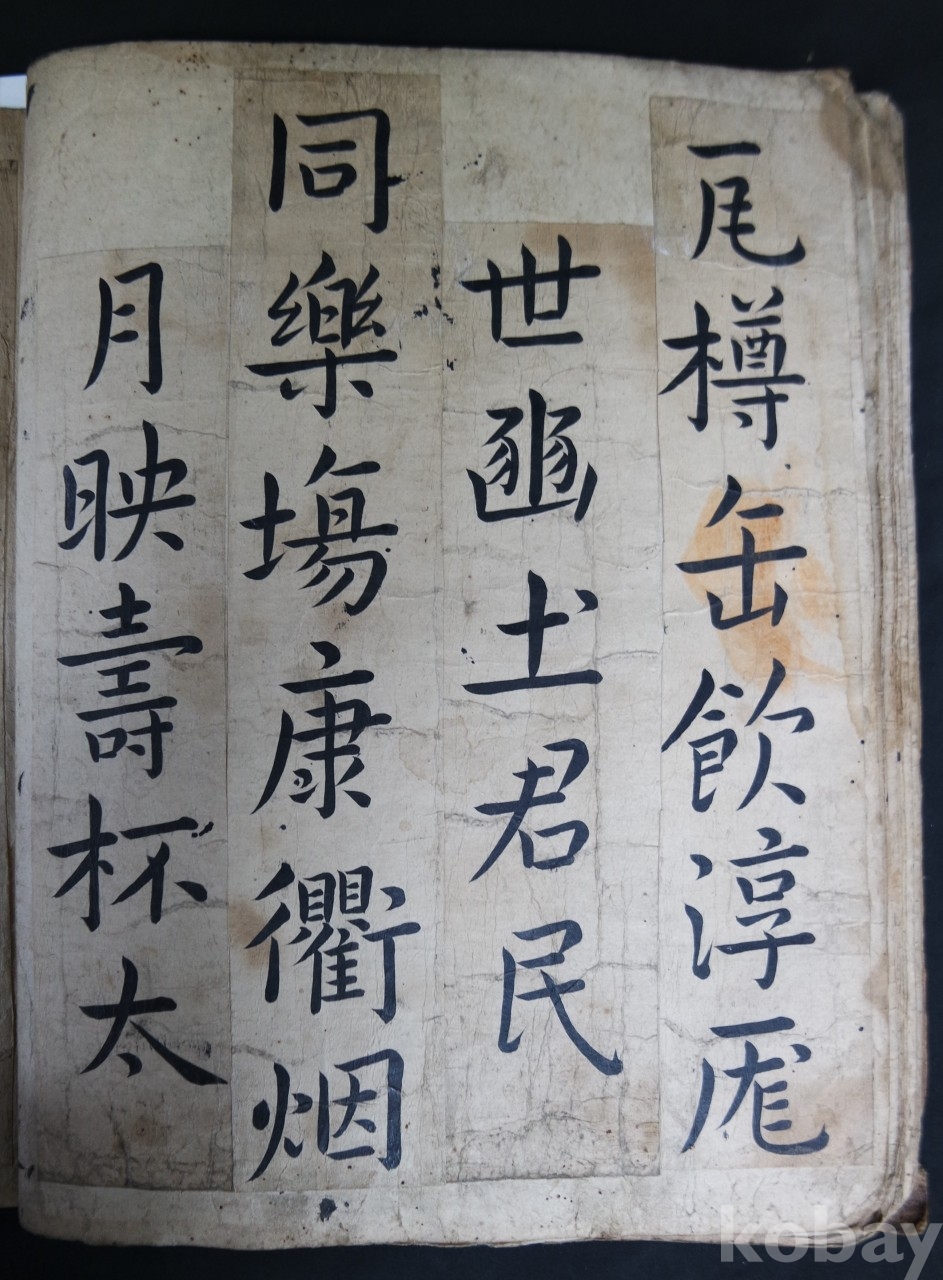 瓦樽缶飲淳厖
世豳圡君民
同樂塲康衢烟
月映壽杯太
kobay